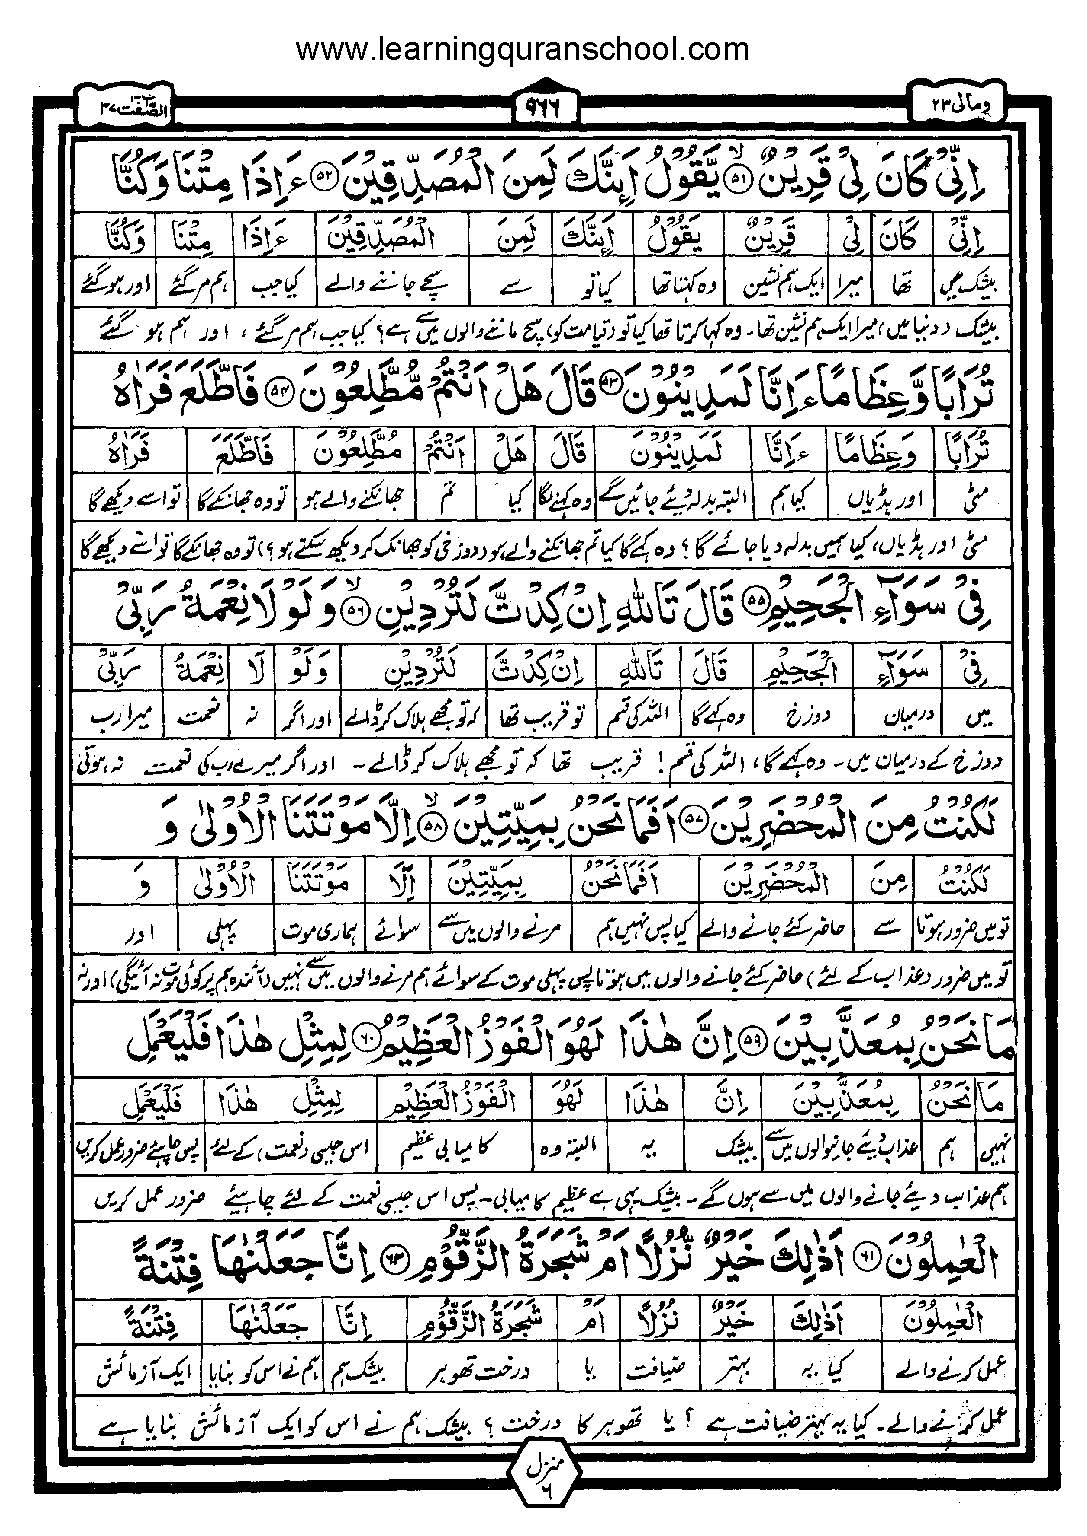 www.learningquranschool.com
وما لی ۲۳
۹۶۶
الصّٰٓفّٰت ۳۷
اِنِّیْ كَانَ لِیْ قَرِیْنٌ ۙ۵۱ یَّقُوْلُ اَىِٕنَّكَ لَمِنَ الْمُصَدِّقِیْنَ ۵۲ ءَاِذَا مِتْنَا وَكُنَّا
اِنِّیْ كَانَ لِیْ قَرِیْنٌ یَقُوْلُ اَىِٕنَّكَ لَمِنَ الْمُصَدِّقِیْنَ ءَاِذَا مِتْنَا وَكُنَّا
بیشک میں تھا میرا ایک ہم نشین وہ کہتا تھا کیا تو سے سچے جاننے والے کیا جب ہم مر گئے اور ہو گئے
بیشک (دنیا میں) میرا ایک ہم نشین تھا۔ وہ کہا کرتا تھا کیا تو (قیامت کو) سچ ماننے والوں میں سے ہے؟ کیا جب ہم مر گئے، اور ہم ہو گئے
تُرَابًا وَّعِظَامًا ءَاِنَّا لَمَدِیْنُوْنَ ۵۳ قَالَ هَلْ اَنْتُمْ مُّطَّلِعُوْنَ ۵۴ فَاطَّلَعَ فَرَاٰهُ
تُرَابًا وَعِظَامًا ءَاِنَّا لَمَدِیْنُوْنَ قَالَ هَلْ اَنْتُمْ مُطَّلِعُوْنَ فَاطَّلَعَ فَرَاٰهُ
مٹی اور ہڈیاں کیا ہم البتہ بدلہ دیئے جائیں گے وہ کہنے لگا کیا تم جھانکنے والے ہو تو وہ جھانکے گا تو اسے دیکھے گا
مٹی اور ہڈیاں، کیا ہمیں بدلہ دیا جائے گا؟ وہ کہے گا کیا تم جھانکنے والے ہو (دوزخی کو جھانک کر دیکھ سکتے ہو؟) تو وہ جھانکے گا تو اسے دیکھے گا
فِیْ سَوَآءِ الْجَحِیْمِ ۵۵ قَالَ تَاللّٰهِ اِنْ كِدْتَّ لَتُرْدِیْنِ ۙ۵۶ وَلَوْلَا نِعْمَةُ رَبِّیْ
فِیْ سَوَآءِ الْجَحِیْمِ قَالَ تَاللّٰهِ اِنْ كِدْتَّ لَتُرْدِیْنِ وَلَوْ لَا نِعْمَةُ رَبِّیْ
میں درمیان دوزخ وہ کہے گا اللہ کی قسم تو قریب تھا کہ تو مجھے ہلاک کر ڈالے اور اگر نہ نعمت میرا رب
دوزخ کے درمیان میں۔ وہ کہے گا، اللہ کی قسم! قریب تھا کہ تو مجھے ہلاک کر ڈالے۔ اور اگر میرے رب کی نعمت نہ ہوتی
لَكُنْتُ مِنَ الْمُحْضَرِیْنَ ۵۷ اَفَمَا نَحْنُ بِمَیِّتِیْنَ ۙ۵۸ اِلَّا مَوْتَتَنَا الْاُوْلٰی وَ
لَكُنْتُ مِنَ الْمُحْضَرِیْنَ اَفَمَا نَحْنُ بِمَیِّتِیْنَ اِلَّا مَوْتَتَنَا الْاُوْلٰی وَ
تو میں ضرور ہوتا سے حاضر کئے جانے والے کیا پس نہیں ہم مرنے والوں میں سے سوائے ہماری موت پہلی اور
تو میں ضرور (عذاب کے لئے) حاضر کئے جانے والوں میں ہوتا پس پہلی موت کے سوائے ہم مرنے والوں میں سے نہیں (آئندہ ہم پر کوئی موت نہ آئیگی) اور نہ
مَا نَحْنُ بِمُعَذَّبِیْنَ ۵۹ اِنَّ هٰذَا لَهُوَ الْفَوْزُ الْعَظِیْمُ ۶۰ لِمِثْلِ هٰذَا فَلْیَعْمَلِ
مَا نَحْنُ بِمُعَذَّبِیْنَ اِنَّ هٰذَا لَهُوَ الْفَوْزُ الْعَظِیْمُ لِمِثْلِ هٰذَا فَلْیَعْمَلِ
نہیں ہم عذاب دیئے جانیوالوں میں سے بیشک یہ البتہ وہ کامیابی عظیم اس جیسی (نعمت) کے لئے پس چاہئے ضرور عمل کریں
ہم عذاب دیئے جانے والوں میں سے ہوں گے۔ بیشک یہی ہے عظیم کامیابی۔ پس اس جیسی نعمت کے لئے چاہیئے ضرور عمل کریں
الْعٰمِلُوْنَ ۶۱ اَذٰلِكَ خَیْرٌ نُّزُلًا اَمْ شَجَرَةُ الزَّقُّوْمِ ۶۲ اِنَّا جَعَلْنٰهَا فِتْنَةً
الْعٰمِلُوْنَ اَذٰلِكَ خَیْرٌ نُزُلًا اَمْ شَجَرَةُ الزَّقُّوْمِ اِنَّا جَعَلْنٰهَا فِتْنَةً
عمل کرنے والے کیا یہ بہتر ضیافت یا درخت تھوہر بیشک ہم ہم نے اس کو بنایا ایک آزمائش
عمل کرنے والے۔ کیا یہ بہتر ضیافت ہے؟ یا تھوہر کا درخت؟ بیشک ہم نے اس کو ایک آزمائش بنایا ہے
منزل ۶